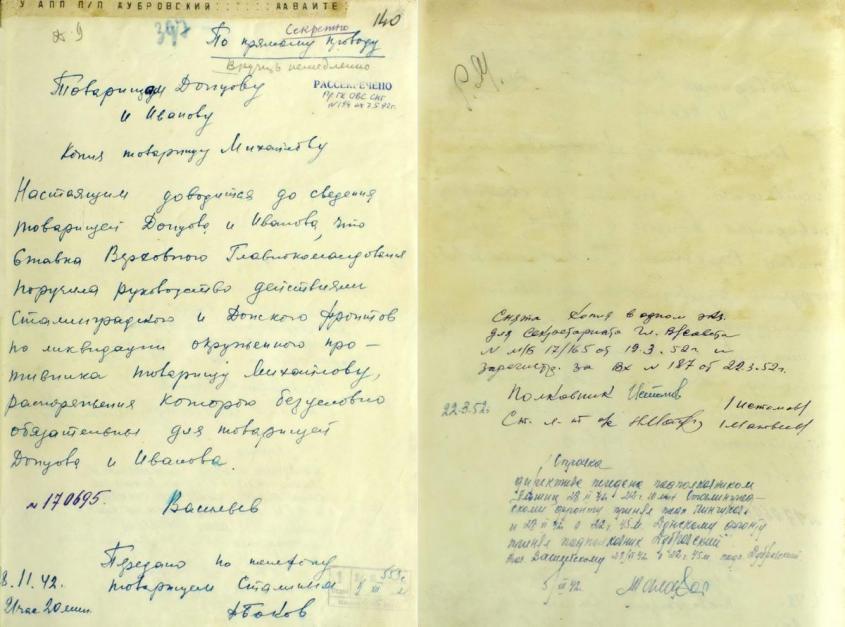 У АПП П/П ДУБРОВСКИЙ : : : : : ДАВАЙТЕ
140
Секретно
По прямому проводу
Вручить немедленно
РАССЕКРЕЧЕНО
Товарищам Донцову
и Иванову
Копия товарищу Михайлову
Настоящим доводится до сведения
товарищей Донцова и Иванова, что
Ставка Верховного Главнокомандования
поручила руководство действиями
Сталинградского и Донского фронтов
по ликвидации окруженного про-
тивника товарищу Михайлову,
распоряжения которого безусловно
обязательны для товарищей
Донцова и Иванова.
№ 170695.
Васильев
Передано по телефону
товарищем Сталиным
8.11.42.
21 час 20 мин.
Боков
Снята копия в одном экз.
для Секретариата Гл.
№ 17/165 от 19.3.52г и
зарегистр. за Вх № 187 от 22.3.52г.
Полковник
22.3.52г
Ст. л-т
Справка
Директива передана подполковником
28 XI 42 22 г. 10 мин Сталинград-
скому фронту принял
и 28 XI 42 в 22 ч 45 м Донскому фронту
принял подполковник Дубровский
Тов. Василевскому в 22 ч. 45 м. Дубровский
XII 42